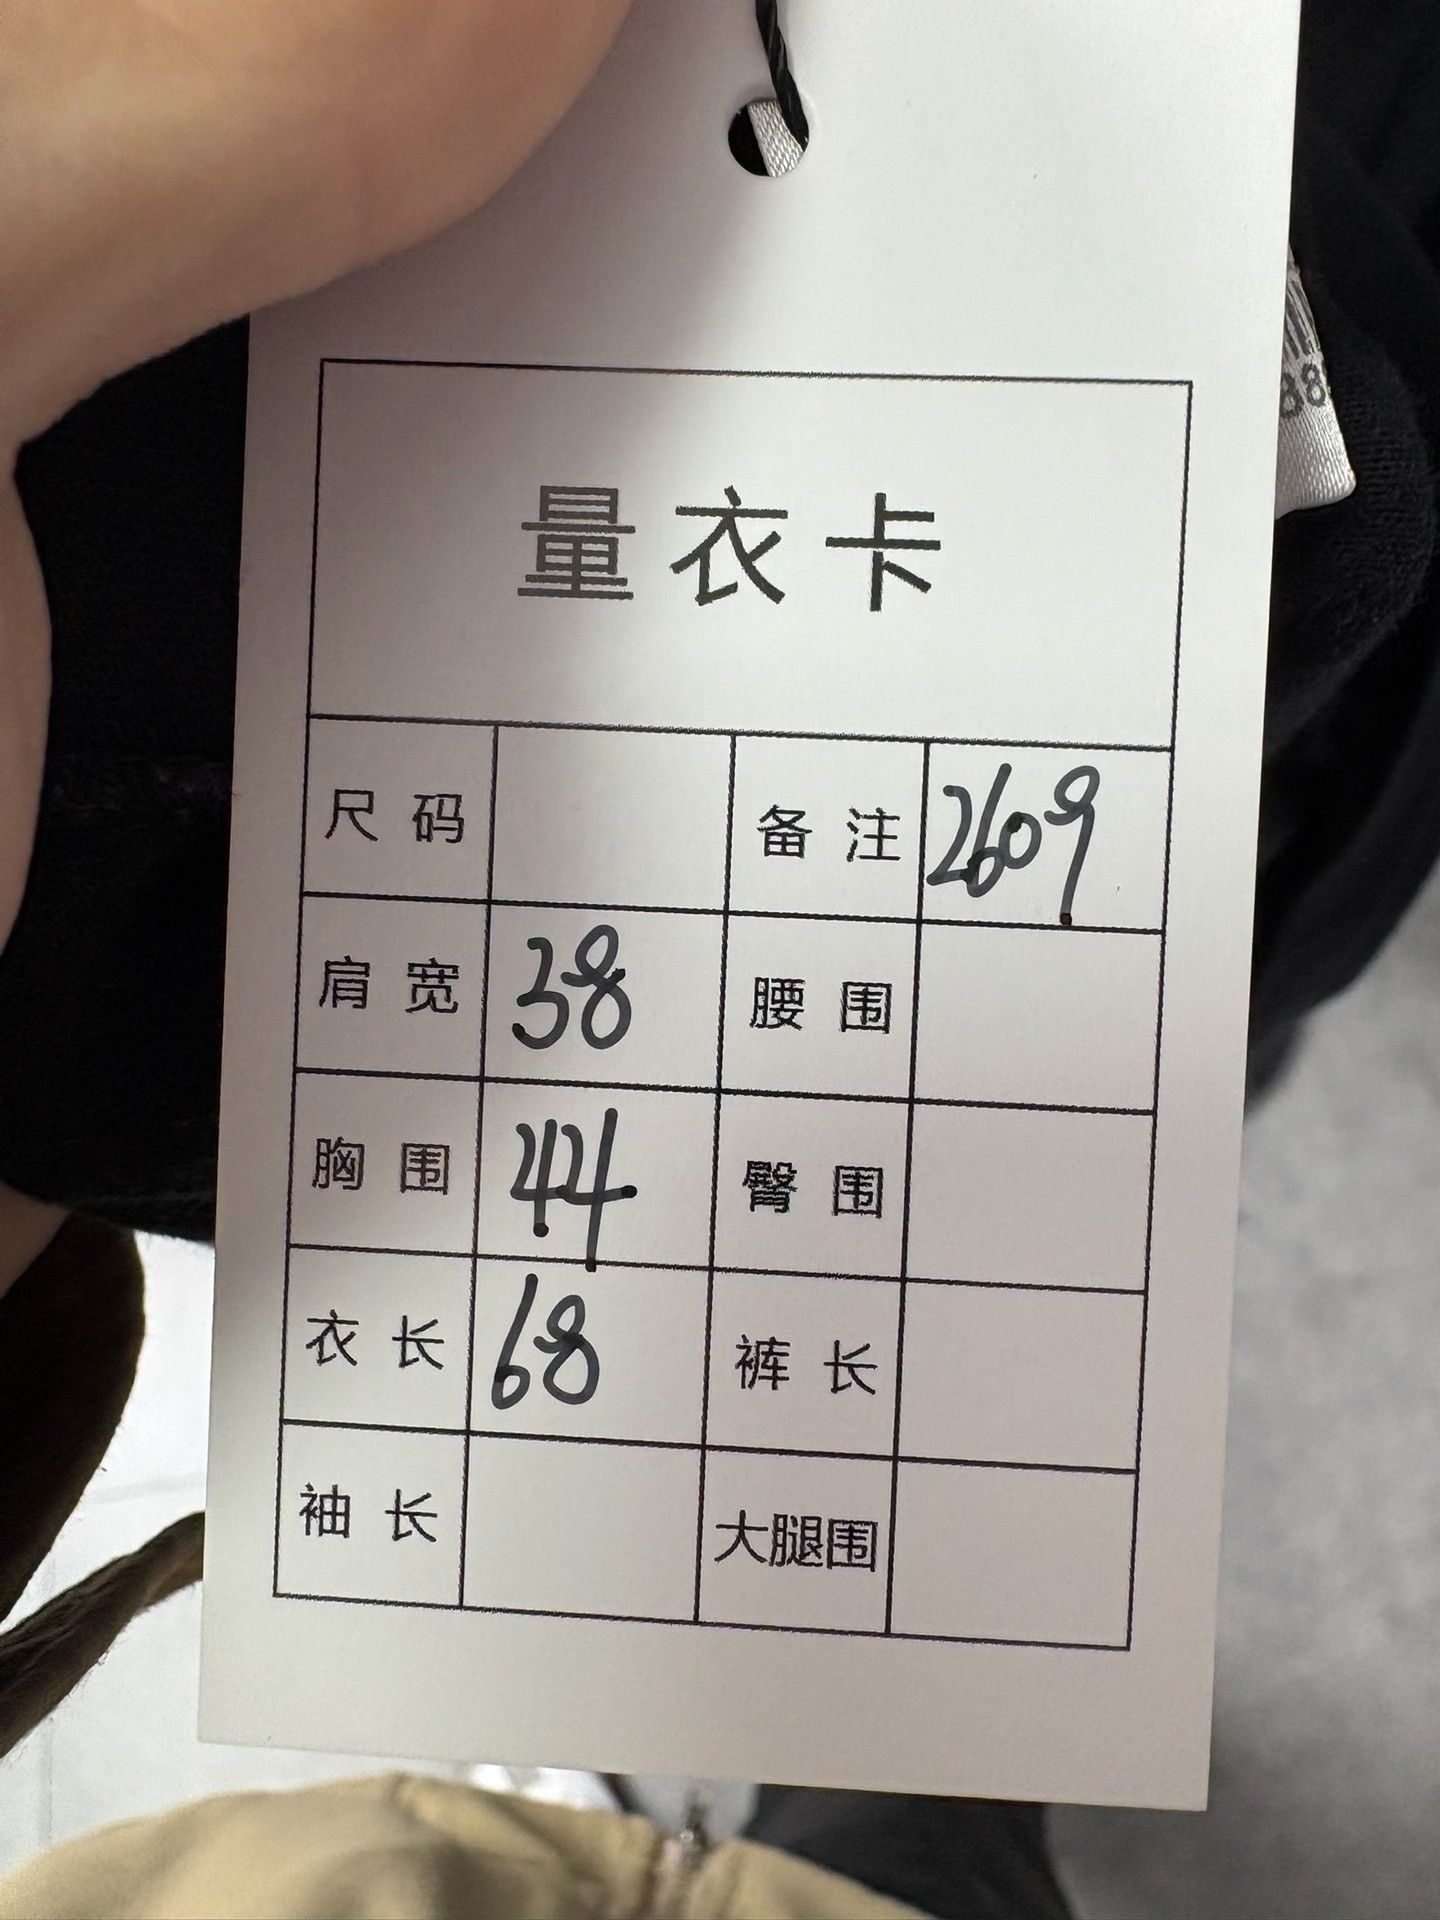 量衣卡
尺码 备注 2609
肩宽 38 腰围
胸围 44 臀围
衣长 68 裤长
袖长 大腿围
88